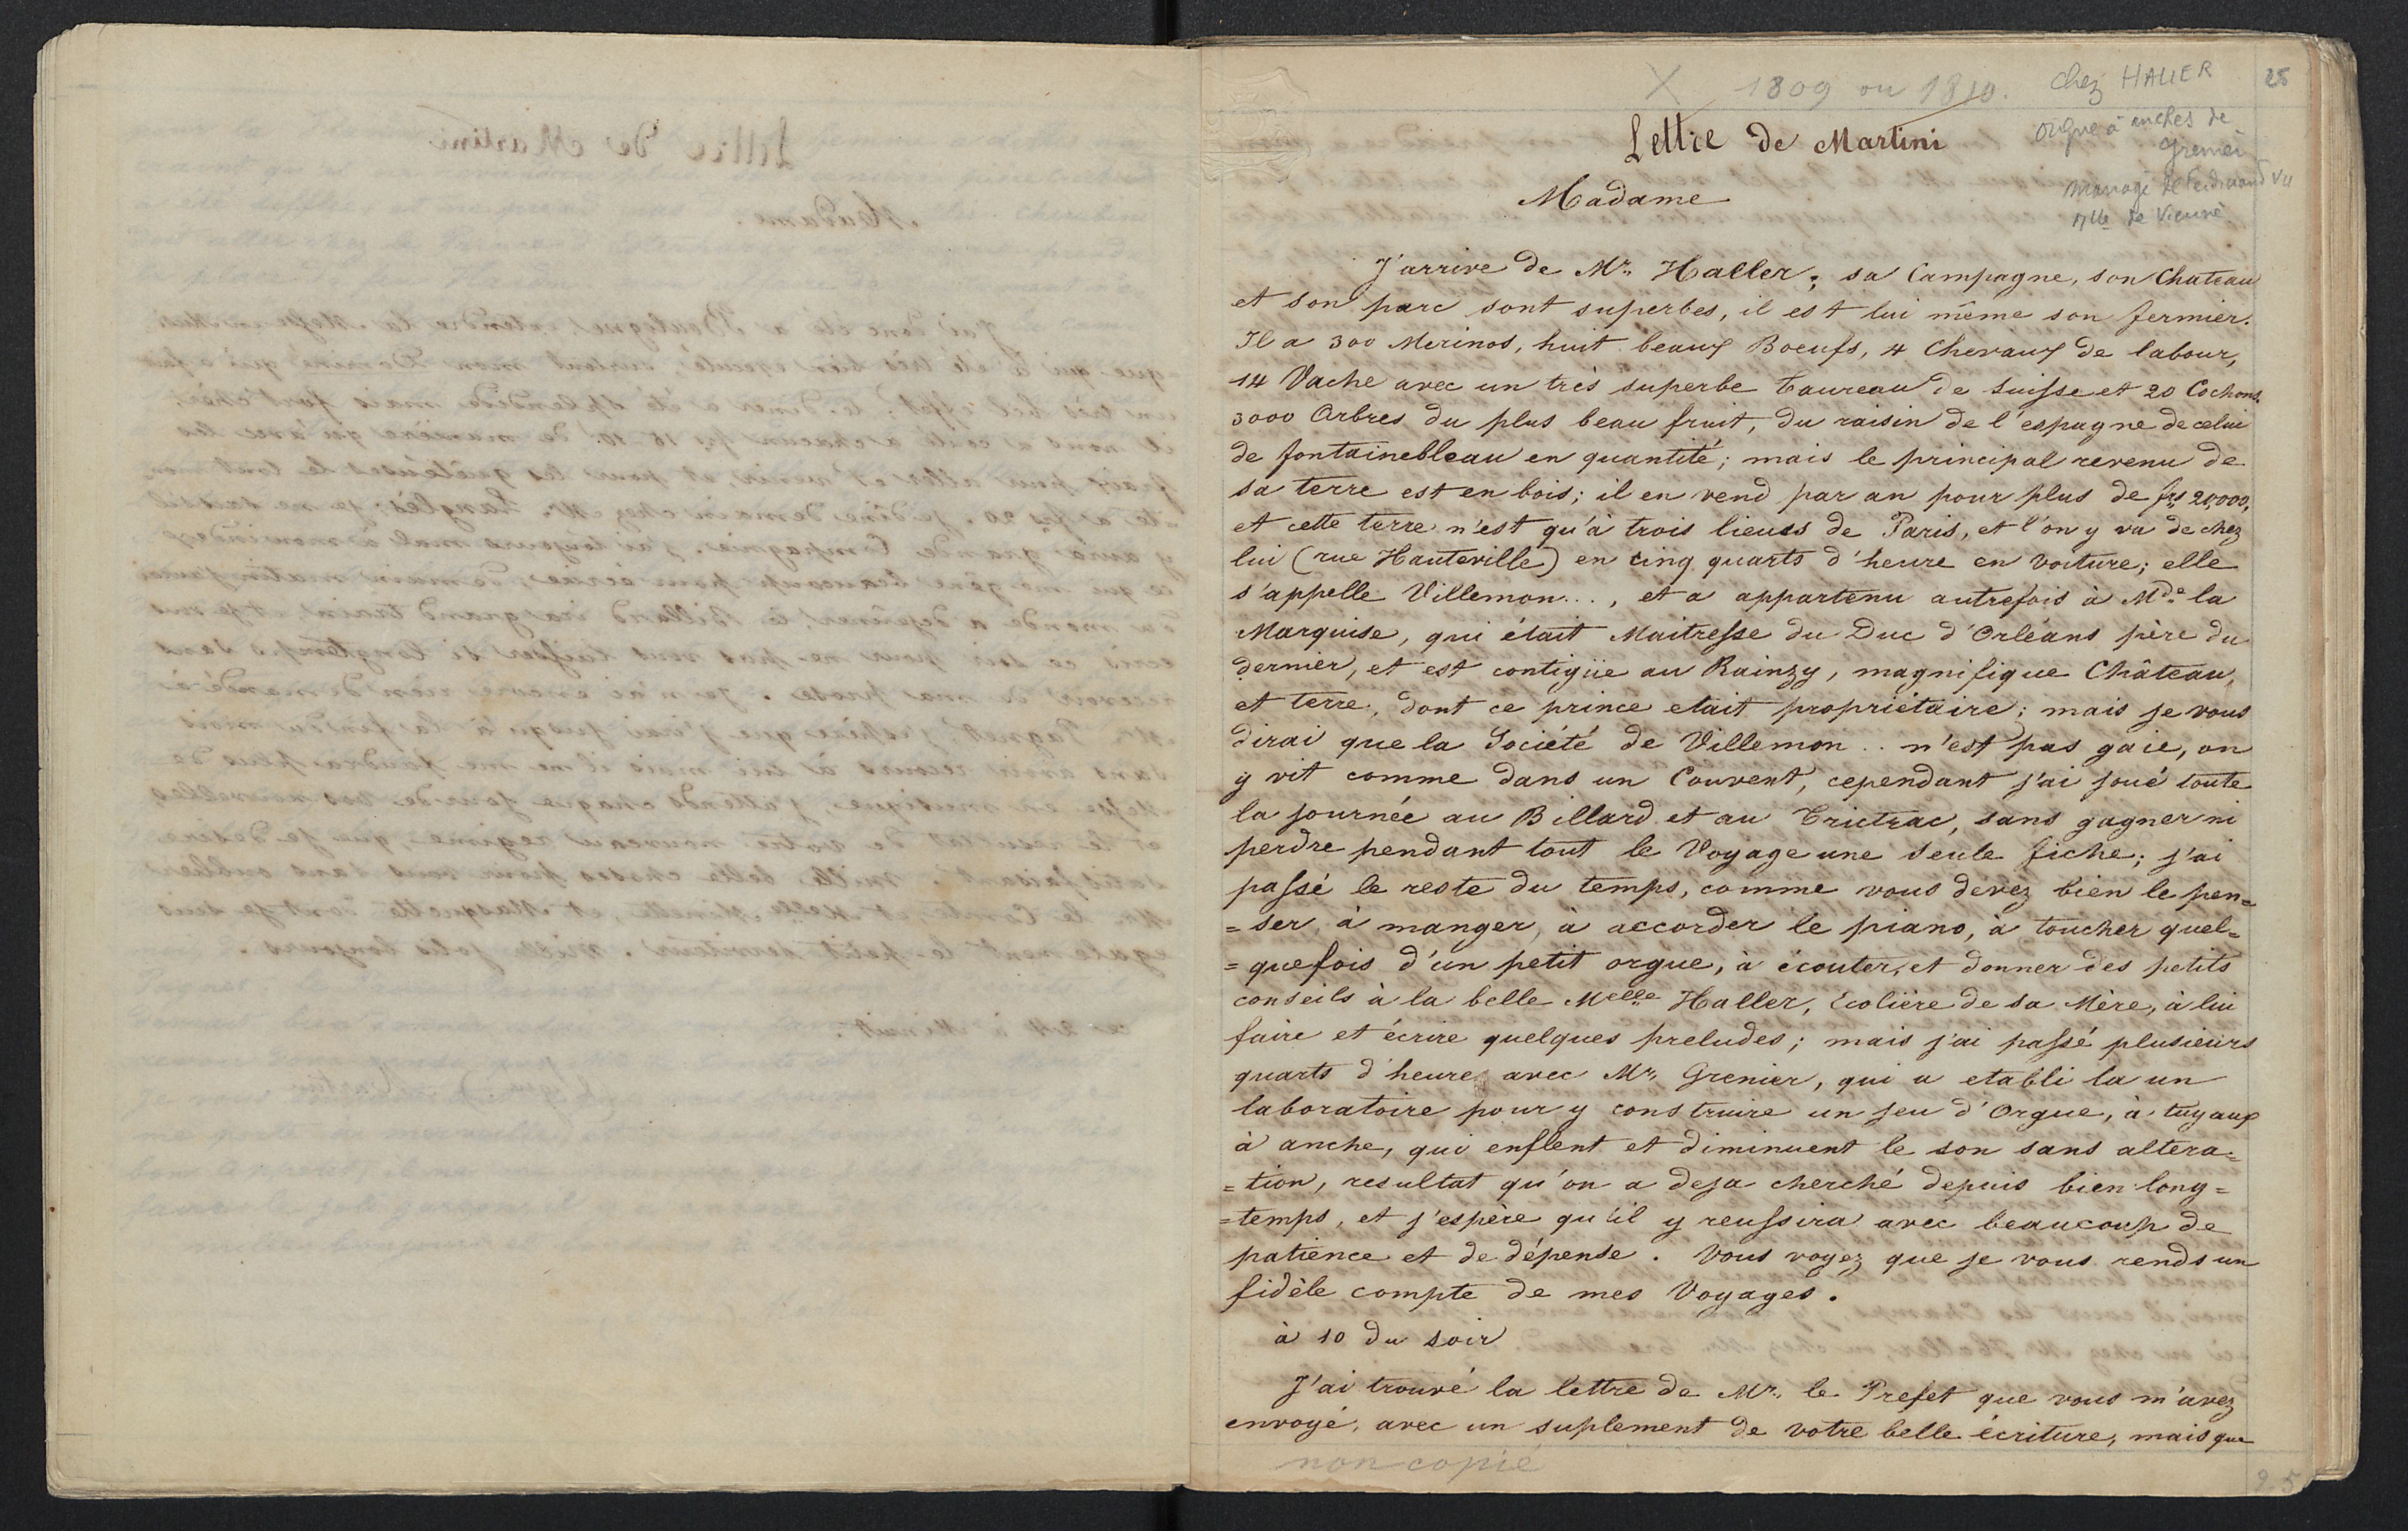 X 1809 ou 1810. Chez HALLER 25
Orgue à anches de
Grenier
Mariage de Ferdinand VII
Mlle de Vienne
Lettre de Martini
Madame
J'arrive de Mr. Haller; sa Campagne, son Chateau
et son parc sont superbes, il est lui même son fermier.
Il a 300 Merinos, huit beaux Boeufs, 4 Chevaux de labour,
14 Vache avec un très superbe taureau de Suisse et 20 Cochons.
3000 Arbres du plus beau fruit, du raisin de l'espagne de celui
de fontainebleau en quantité; mais le principal revenu de
sa terre est en bois; il en vend par an pour plus de frs 20,000,
et cette terre n'est qu'à trois lieues de Paris, et l'on y va de chez
lui (rue Hauteville) en cinq quarts d'heure en voiture; elle
s'appelle Villemon..., et a appartenu autrefois à Mde la
Marquise, qui était Maitresse du Duc d'Orléans père du
dernier, et est contigüe au Rainzy, magnifique Château,
et terre, dont ce prince etait propriétaire; mais je vous
dirai que la Société de Villemon.. n'est pas gaie, on
y vit comme dans un Couvent, cependant j'ai joué toute
la journée au Billard et au Trictrac, sans gagner ni
perdre pendant tout le Voyage une seule fiche; j'ai
passé le reste du temps, comme vous devez bien le pen=
=ser, à manger, à accorder le piano, à toucher quel=
=quefois d'un petit orgue, à écouter, et donner des petits
conseils à la belle Melle Haller, écolière de sa Mère, à lui
faire et écrire quelques preludes; mais j'ai passé plusieurs
quarts d'heure avec Mr. Grenier, qui a etabli la un
laboratoire pour y construire un jeu d'Orgue, à tuyaux
à anche, qui enflent et diminuent le son sans altera=
=tion, resultat qu'on a deja cherché depuis bien long=
=temps, et j'espère qu'il y reussira avec beaucoup de
patience et de dépense. Vous voyez que je vous rends un
fidèle compte de mes Voyages.
à 10 du soir
J'ai trouvé la lettre de Mr. le Prefet que vous m'avez
envoyé, avec un suplement de votre belle écriture, mais que
non copié
25